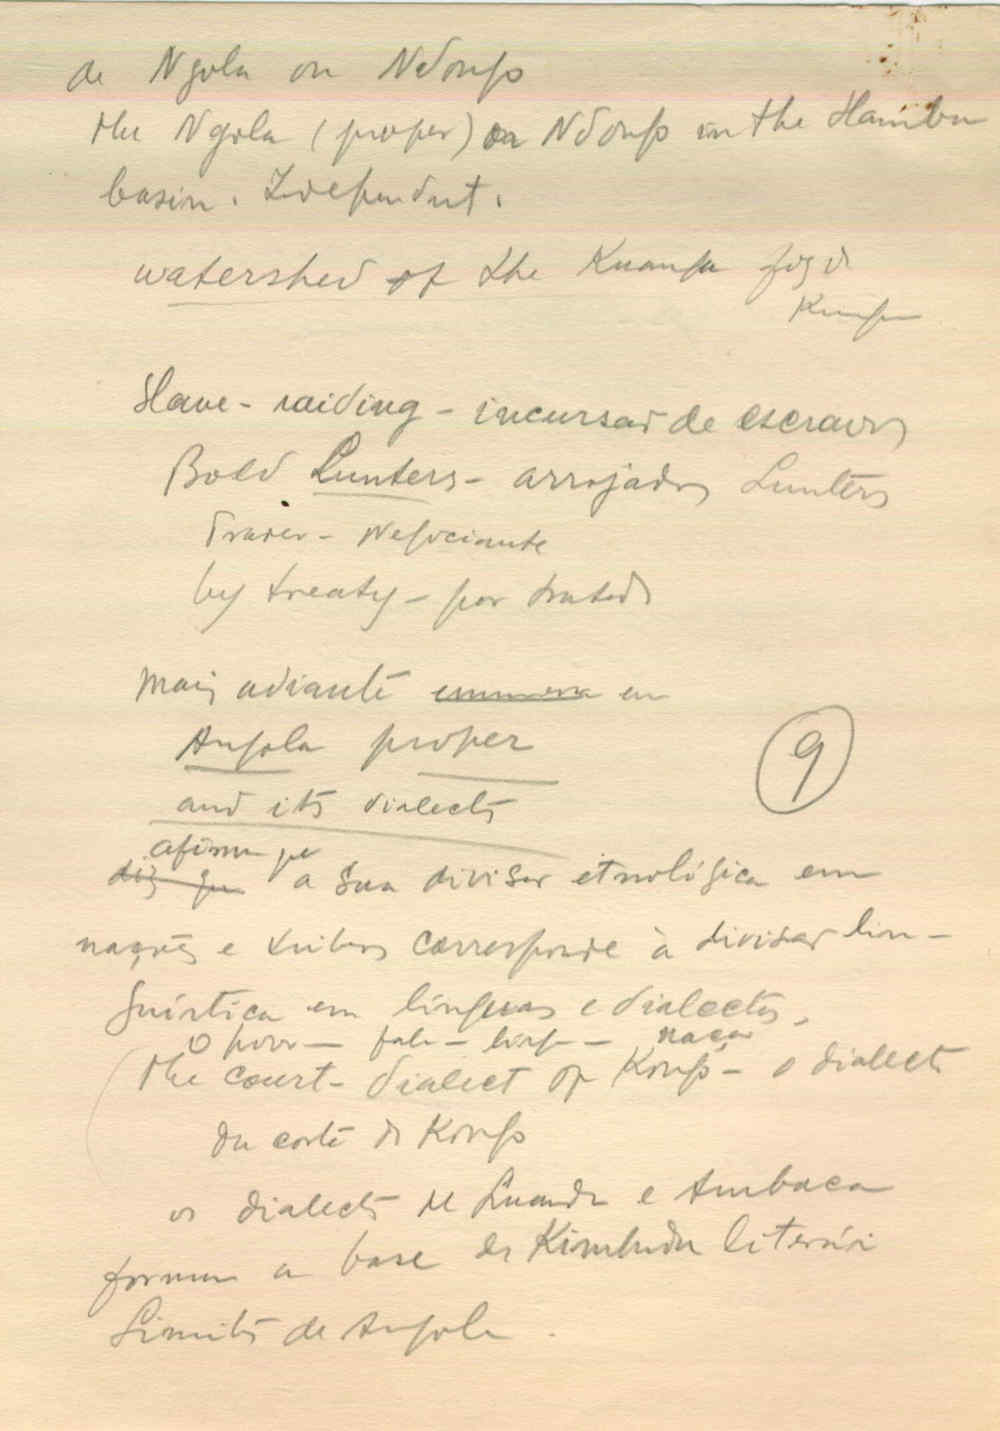 de Ngola ou Ndongo
the Ngola (proper) or Ndongo in the Hamba
basin. Independent.
watershed of the Kuanza
Slave-raiding - incursão de escravos
Bold Lunters - arrojados Lunters
Trader - Negociante
by treaty - por tratado
Mais adiante enumera em
Angola proper
and its dialects
9
afirma que
diz que a sua divisão etnológica em
nações e tribus corresponde à divisão lin-
guística em línguas e dialectos.
o povo - fala - língua - nação
the court-dialect of Kongo - o dialecto
da corte do Kongo
os dialectos de Luanda e Ambaca
formam a base do Kimbundu literário
Limites de Angola.